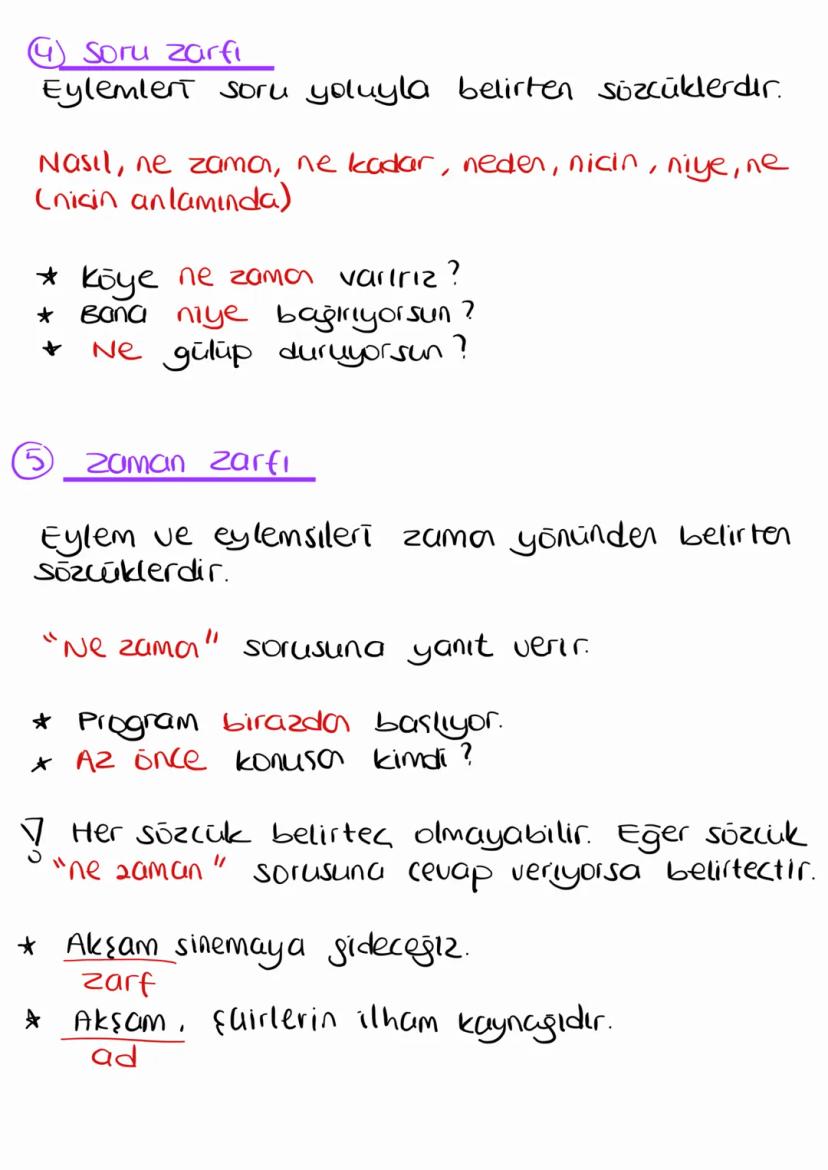 4) Soru zarfı
Eylemleri soru yoluyla belirten sözcüklerdir.
Nasıl, ne zaman, ne kadar, neden, niçin, niye, ne
(niçin anlamında)
* Köye ne zaman varırız?
* Bana niye bağırıyorsun?
* Ne gülüp duruyorsun?
5 zaman zarfı
Eylem ve eylemsileri zaman yönünden belirten
sözcüklerdir.
"Ne zaman" sorusuna yanıt verir.
* Program birazdan başlıyor.
* Az önce konuşan kimdi?
! Her sözcük belirteç olmayabilir. Eğer sözcük
"ne zaman" sorusuna cevap veriyorsa belirteçtir.
* Akşam sinemaya gideceğiz.
zarf
* Akşam, şairlerin ilham kaynağıdır.
ad